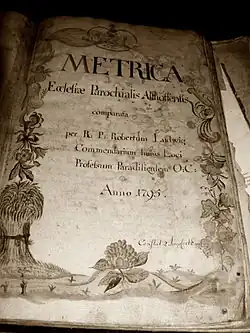 METRICA
Ecclesiæ Parochialis
comparata
per R. P. Robertum Ludwig
Commendarium hujus Loci
Professum Paradisiensem O.C.
Anno 1795.